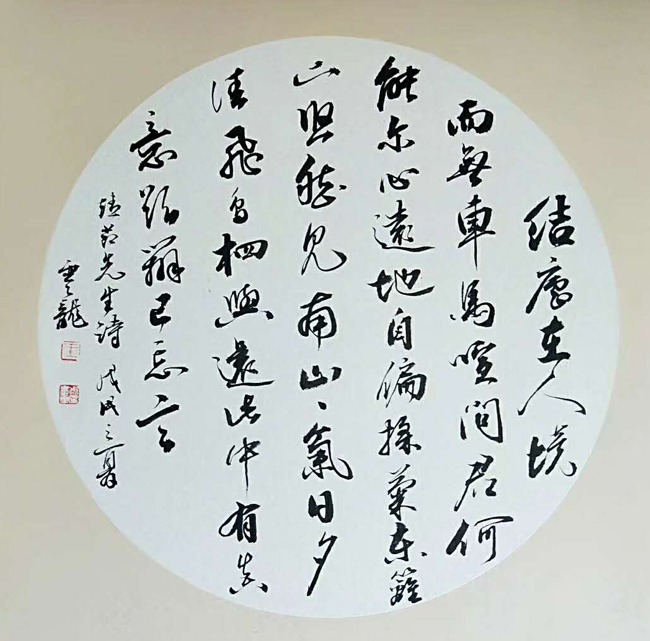 結廬在人境
而無車馬喧問君何
能尔心遠地自偏採菊東籬
下悠然見南山〻氣日夕
佳飛鳥相與還此中有真
意欲辨已忘言
靖節先生詩 戊戌之夏
雲龍